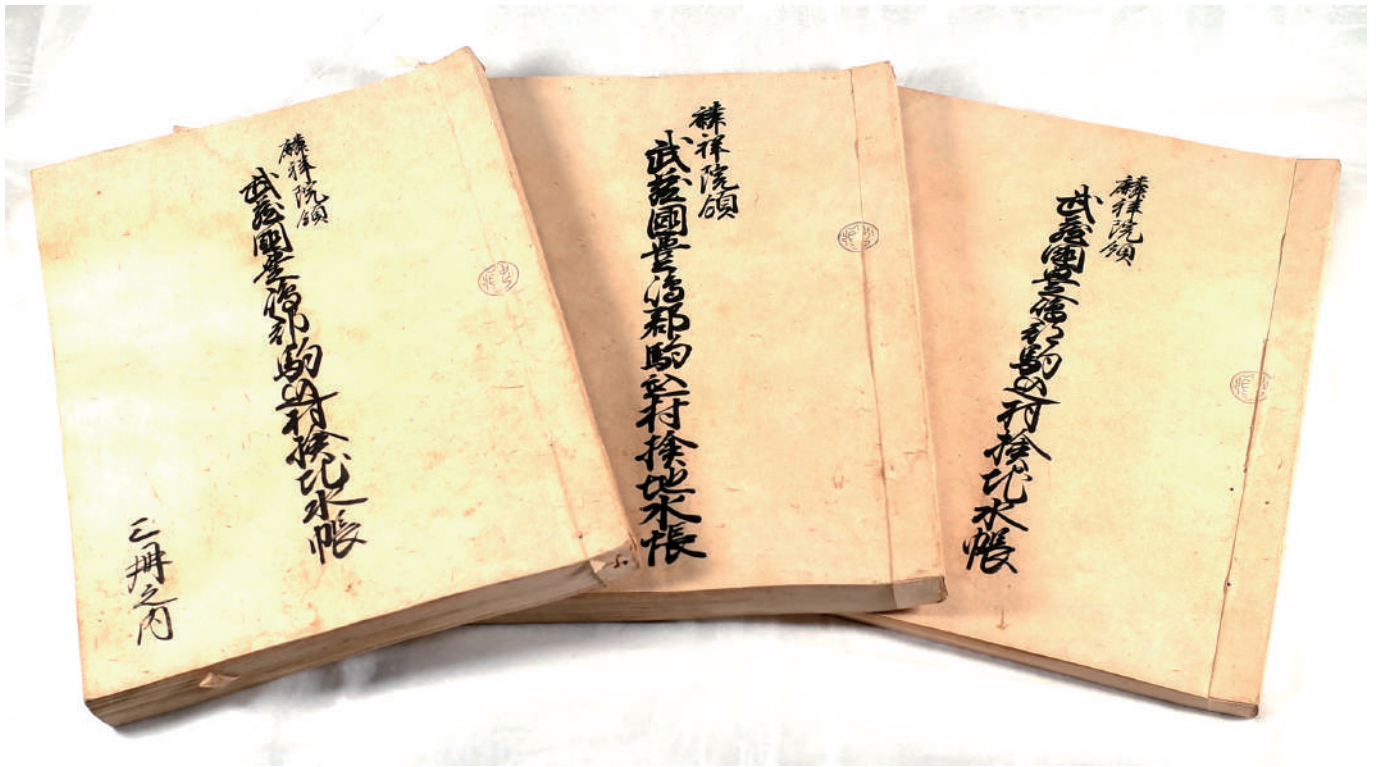 麟祥院領
武蔵國豊嶋郡駒込村検地水帳
麟祥院領
武蔵國豊嶋郡駒込村検地水帳
麟祥院領
武蔵國豊嶋郡駒込村検地水帳
三冊之内